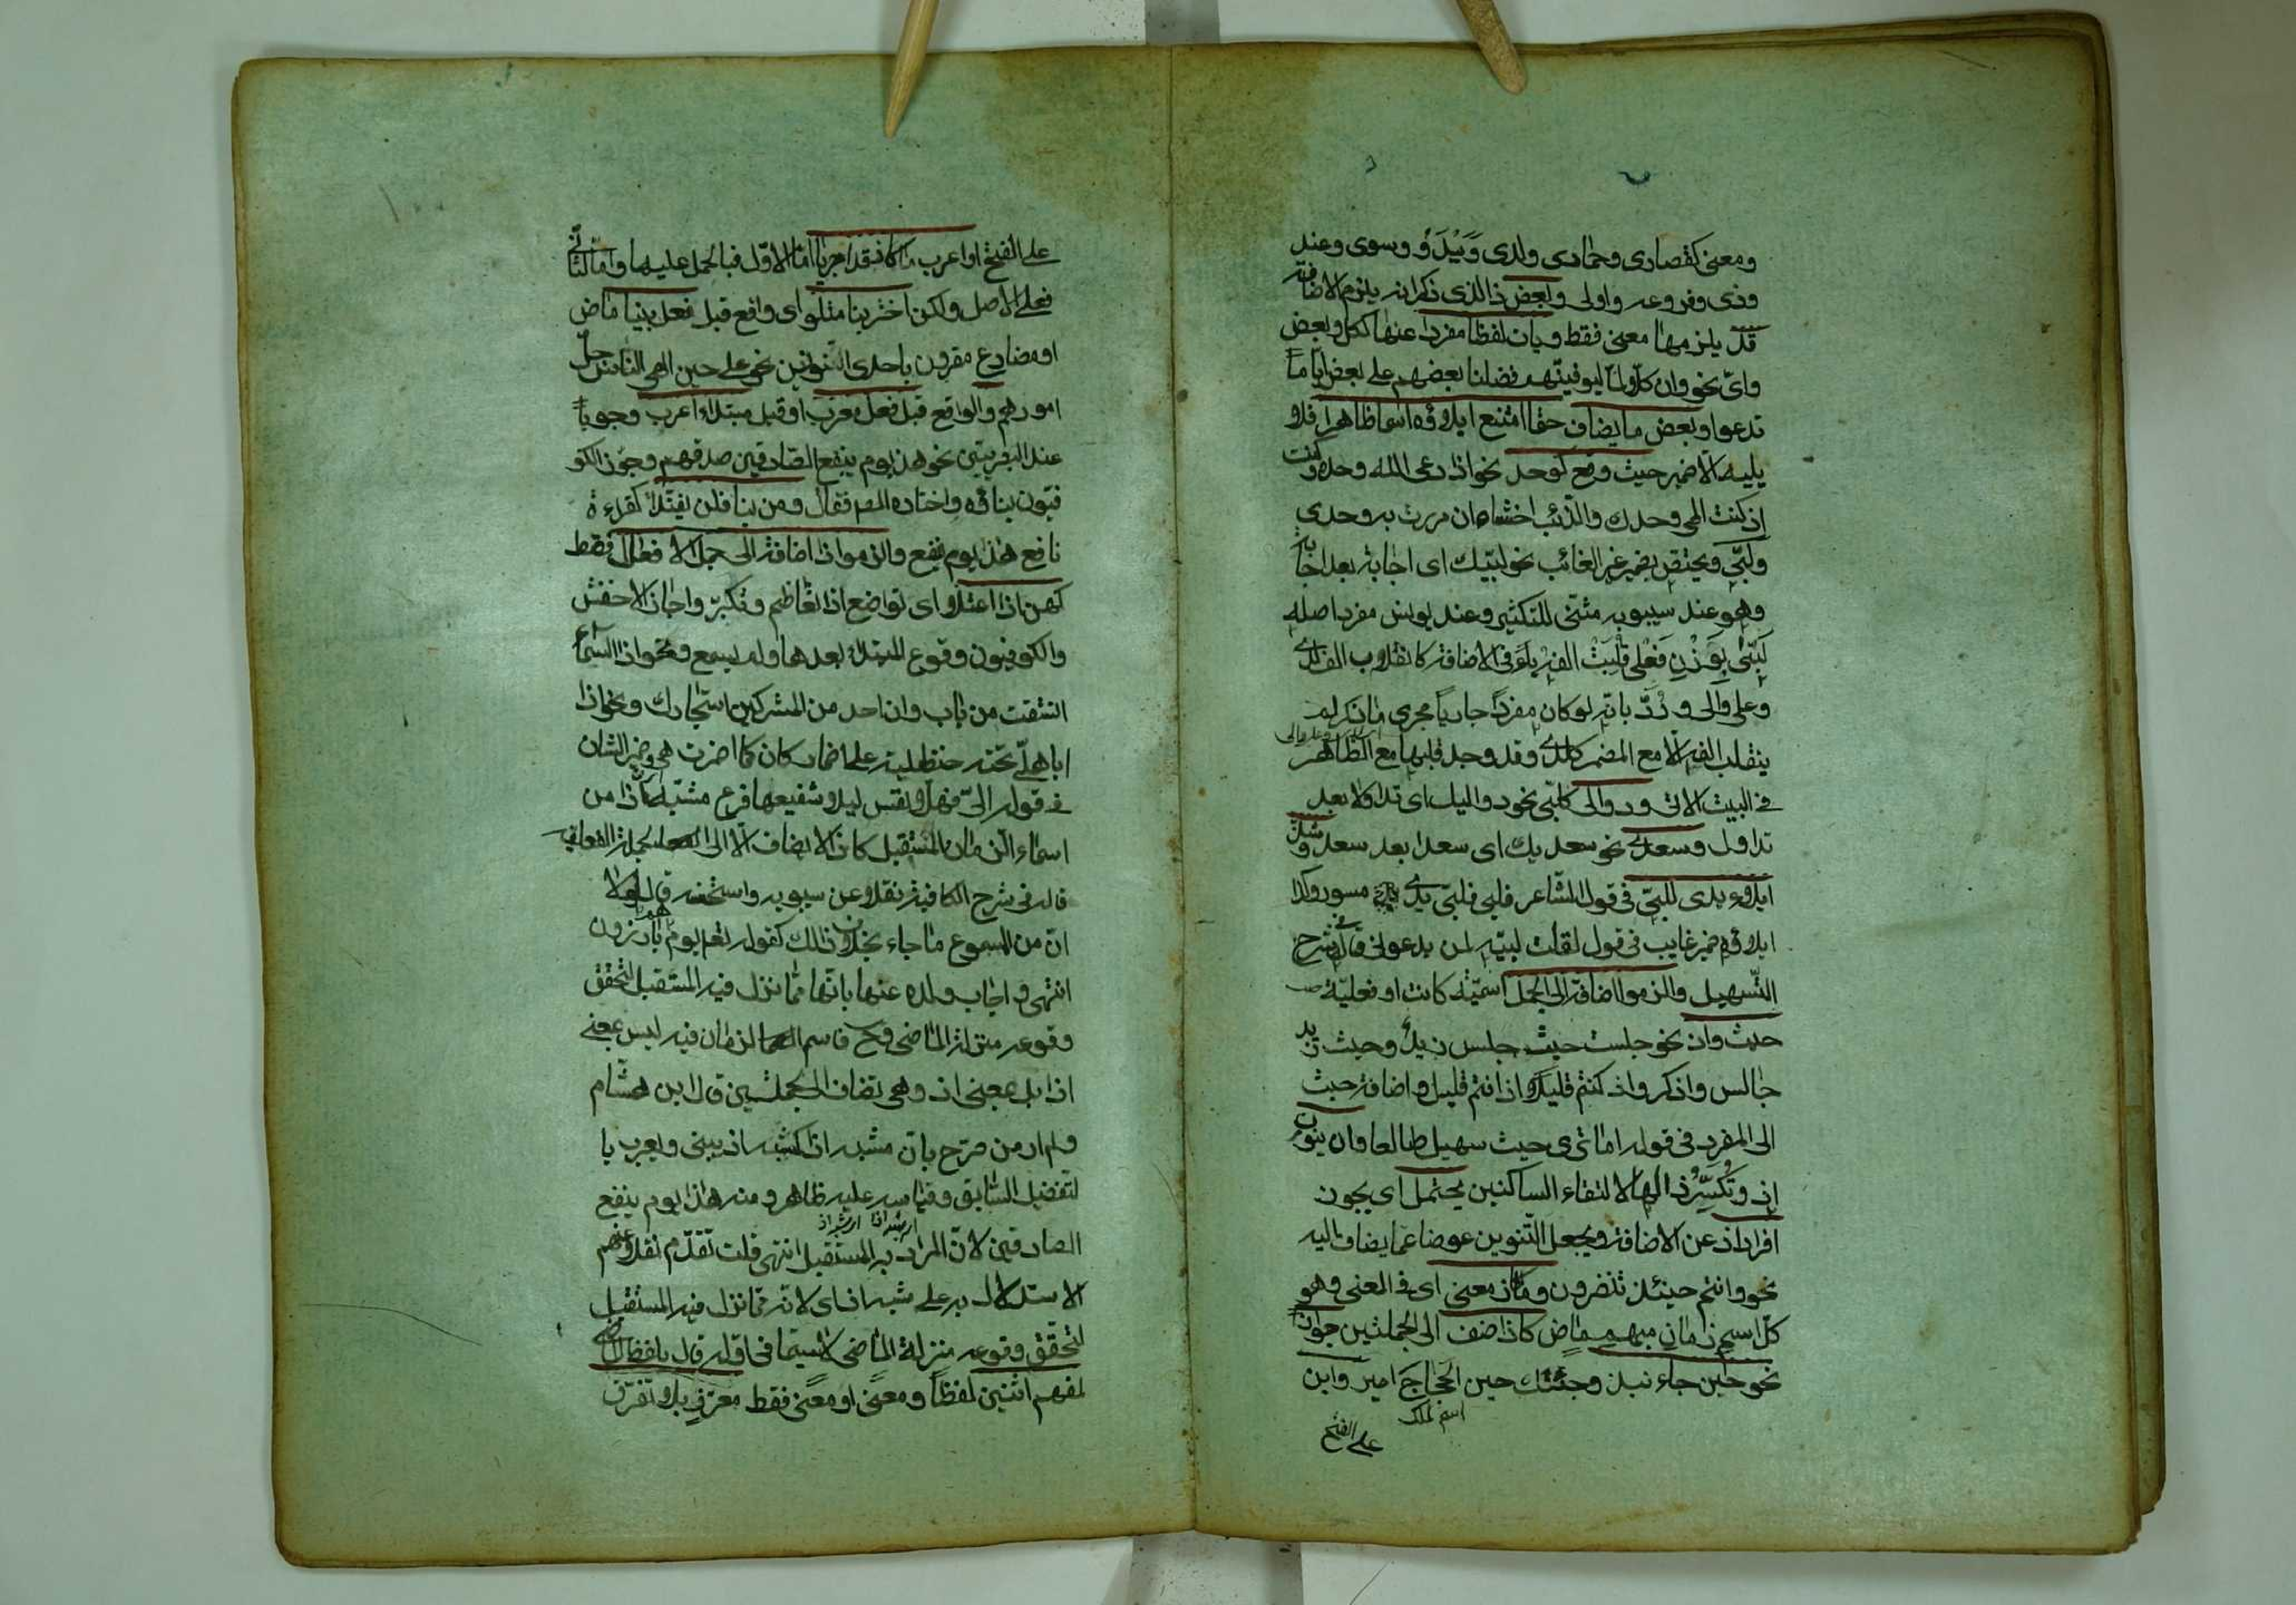 ومعنى كقصارى وحمادى ولدى وَبَيْدَ وسوى وعند
وذى وفروعه واولى وبعض ذا الذى ذكرانه يلزم الاضافة
قد يلزمها معنى فقط ويات لفظا مفردا عنها ككل وبعض
واىّ نحو وان كلاّ لما ليوفينّهم فضلنا بعضهم على بعض اياما
تدعوا وبعض ما يضاف حتما امتنع ايلاؤه اسما ظاهرا فلا
يليه الا ضمير حيث وقع كوحد نحو اذا دعى الله وحده وكنت
اذ كنت الهى وحدك والذئب اخشاه ان مررت به وحدى
ولبّى ويختص بضمير غير الغائب نحو لبّيك اى اجابة بعد اجابة
وهو عند سيبويه مثنّى للتكثير وعند يونس مفرد اصله
لَبَّى بوَزْنِ فَعْلى قُلِبَتْ الفه ياءً فى الاضافة كانقلاب الف لدى
وعلى والى ورُدَّ بانّه لو كان مفردًا جاريًا مجرى ما ذكر لم
ينقلب الفه الا مع المضمر كلدى وقد وجد قلبها مع الظاهر
فى البيت الاتى ودوالى كلبّى نحو دواليك اى تداولا بعد
تداول وسعدى نحو سعديك اى سعدا بعد سعد وشذّ
ايلاء يدى للبّى فى قول الشاعر فلبى فلبّى يدى مسور وكذا
ايلاؤه ضمير غايب فى قول لقلت لبيّه لمن يدعونى قال فى شرح
التّسهيل والزموا اضافة الى الجمل اسميّة كانت او فعليّة
حيث واذ نحو جلست حيث جلس زيد وحيث زيد
جالس واذكروا اذ كنتم قليلا واذ انتم قليل واضافة حيث
الى المفرد فى قوله اما ترى حيث سهيل طالعا وان ينون
اذ وتُكسَّرُ ذالها لالتقاء الساكنين يحتمل اى يجوز
افراد اذ عن الاضافة ويجعل التنوين عوضا عما يضاف اليه
نحو وانتم حينئذ تنظرون وما كاذ معنى اى فى المعنى وهو
كلّ اسم زمان مبهم ماضٍ كاذ اضف الى الجملتين جوازا
نحو حين جاء نبذ وجئتك حين الحَجّاجَ امير وابن
اسم ملك
على الفتح
على الفتح او اعرب ما كاذ قد اجريا امّا الاوّل فبالحمل عليها واما الثانى
فعلى الاصل ولكن اختر بنا متلو اى واقع قبل فعل بنيا ماض
او مضارع مقرون باحدى النونين نحو على حين الهى الناس جلّ
امورهم والواقع قبل فعل معرب او قبل مبتداء اعرب وجوبا
عند البصريين نحو هذا يوم ينفع الصّادقين صدقهم وجوّز الكو
فيّون بناؤه واختاره المص فقال ومن بنا فلن يفنّدا كقراءة
نافع هذا يوم ينفع والزموا اذا اضافة الى جمل الافعال فقط
كهن اذا اعتلا اى تواضع اذا تعاظم وتكبّر واجاز الاخفش
والكوفيون وقوع المبتداء بعدها ولم يسمع ونحو اذا السّماء
انشقت من باب وان احد من المشركين استجارك ونحو اذا
اباهلىّ تحته حنظلية على اضمار كان كما اضمرت هى وضمير الشان
فى قوله الىّ فهلّا نفس ليلى شفيعها فرع مشبّه اذا من
اسماء الزمان المستقبل كاذا لا يضاف الّا الى الجملة الفعلية
قاله فى شرح الكافية نقلا عن سيبويه واستحسنه قال لولا
انّ من المسموع ما جاء بخلاف ذلك كقوله تعم يوم هم بارزون
انتهى واجاب ولده عنها بانّها ممّا نزل فيه المستقبل لتحقق
وقوعه منزلة الماضى وح فاسم الزمان فيه ليس بمعنى
اذا بل بمعنى اذ وهى تضاف الى الجملتين قال ابن هشام
ولم ار من صرّح بان مشبه اذا كمشبه اذ يبنى ويعرب با
لتفضيل السّابق وقياسه عليه ظاهر ومنه هذا يوم ينفع
الصادقين لانّ المراد به المستقبل انتهى قلت تقدّم نقلا عنهم
الاستدلال به على شبه اذ اى لانه ممّا نزل فيه المستقبل
لتحقّق وقوعه منزلة الماضى لا سيّما فى اوّله قال بلفظ الماضى
لمفهم اثنين لفظاً ومعنًى او معنًى فقط معرّفٍ بلا تفرّق